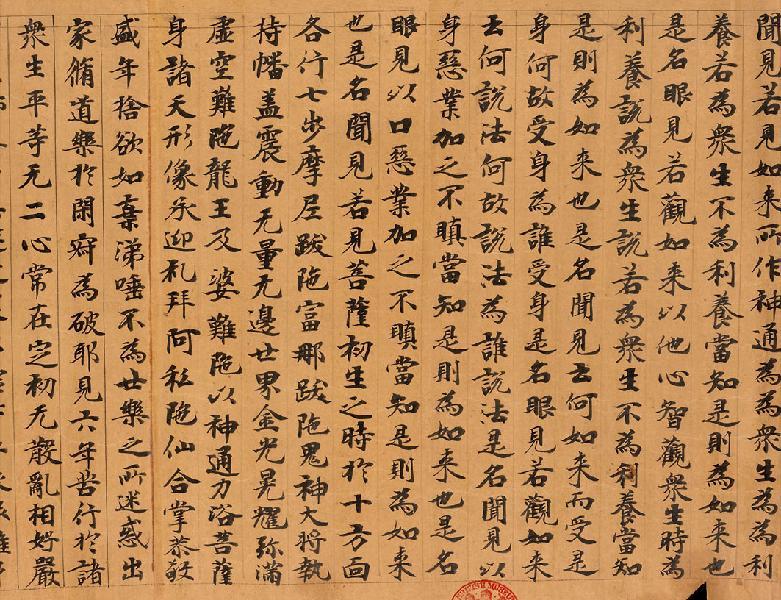 聞見若見如来所作神通為為衆生為為利
養若為衆生不為利養當知是則為如来也
是名眼見若觀如来以他心智觀衆生時為
利養說為衆生說若為衆生不為利養當知
是則為如来也是名聞見云何如来而受是
身何故受身為誰受身是名眼見若觀如来
云何說法何故說法為誰說法是名聞見以
身惡業加之不瞋當知是則為如来也是名
眼見以口惡業加之不瞋當知是則為如来
也是名聞見若見菩薩初生之時於十方面
各行七步摩尼跋陁富那跋陁鬼神大將執
持幡盖震動无量无邊世界金光晃耀弥滿
虛空難陁龍王及婆難陁以神通力浴菩薩
身諸天形像承迎礼拜阿私陁仙合掌恭敬
盛年捨欲如棄涕唾不為世樂之所迷惑出
家脩道樂於閑寂為破耶見六年苦行於諸
衆生平等无二心常在定初无散亂相好嚴